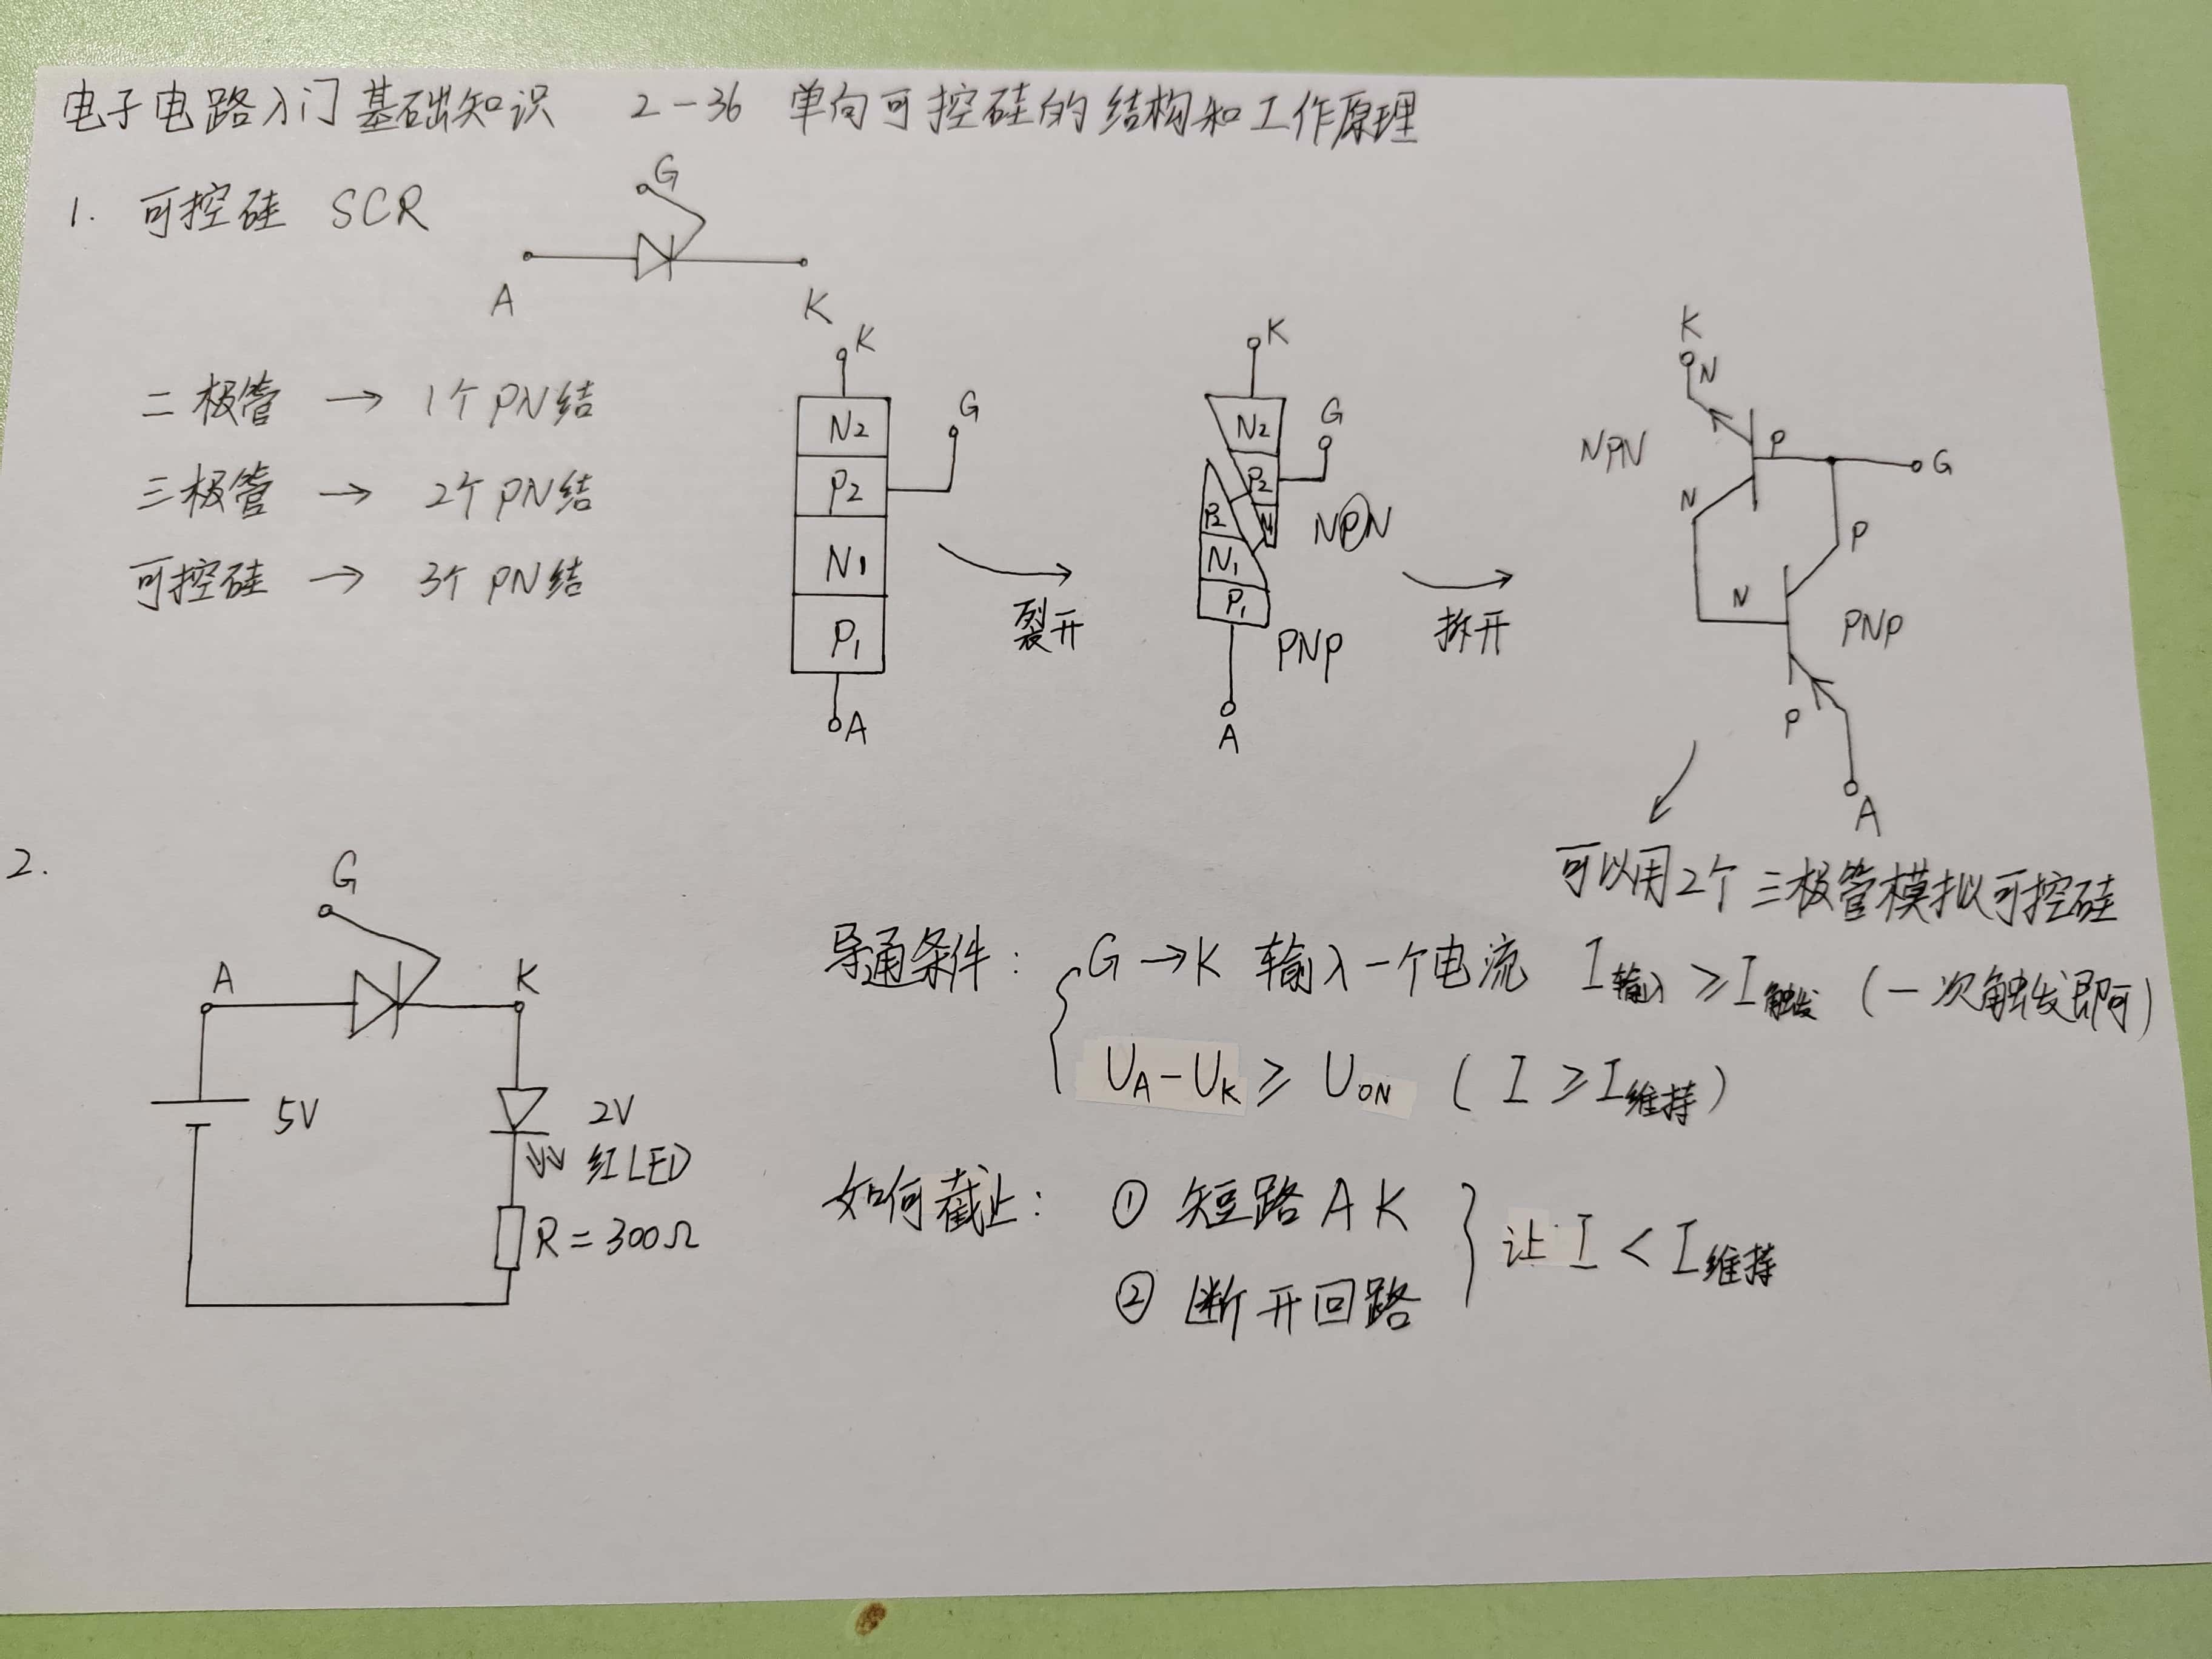 电子电路入门基础知识 2-36 单向可控硅的结构和工作原理
1. 可控硅 SCR
G
A
K
二极管 → 1个PN结
三极管 → 2个PN结
可控硅 → 3个PN结
K
N2
G
P2
N1
P1
A
裂开
K
N2
G
P2
P2
N1
NPN
N1
P1
PNP
A
拆开
K
N
NPN
P
G
N
P
N
PNP
P
A
可以用2个三极管模拟可控硅
2.
G
A
K
5V
2V
红LED
R=300Ω
导通条件: G→K 输入一个电流 I输入 ≥ I触发 (一次触发即可)
UA-UK ≥ UON (I ≥ I维持)
如何截止: ① 短路AK
② 断开回路
让 I < I维持